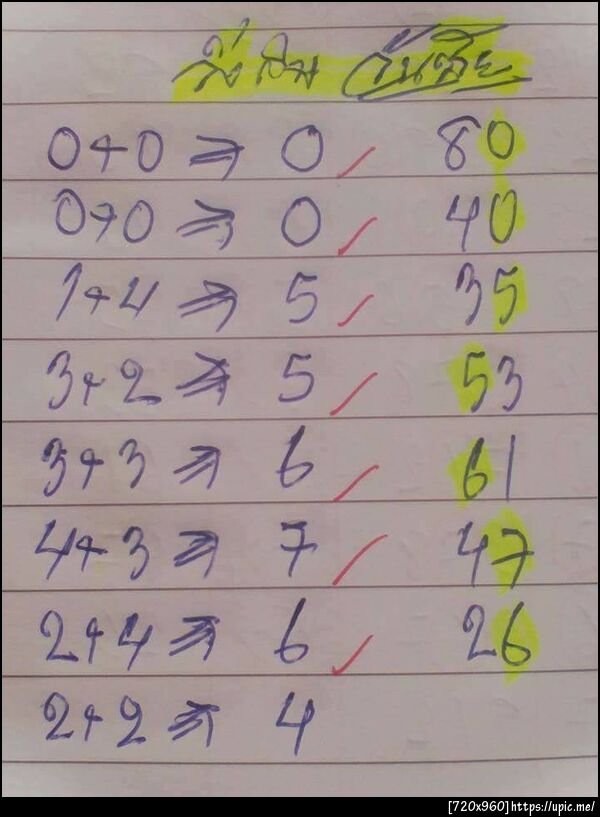 วิ่งบน วินเซีย
0+0 ⇒ 0 ✓ 80
0+0 ⇒ 0 ✓ 40
1+4 ⇒ 5 ✓ 35
3+2 ⇒ 5 ✓ 53
3+3 ⇒ 6 ✓ 61
4+3 ⇒ 7 ✓ 47
2+4 ⇒ 6 ✓ 26
2+2 ⇒ 4
[720x960]https://upic.me/